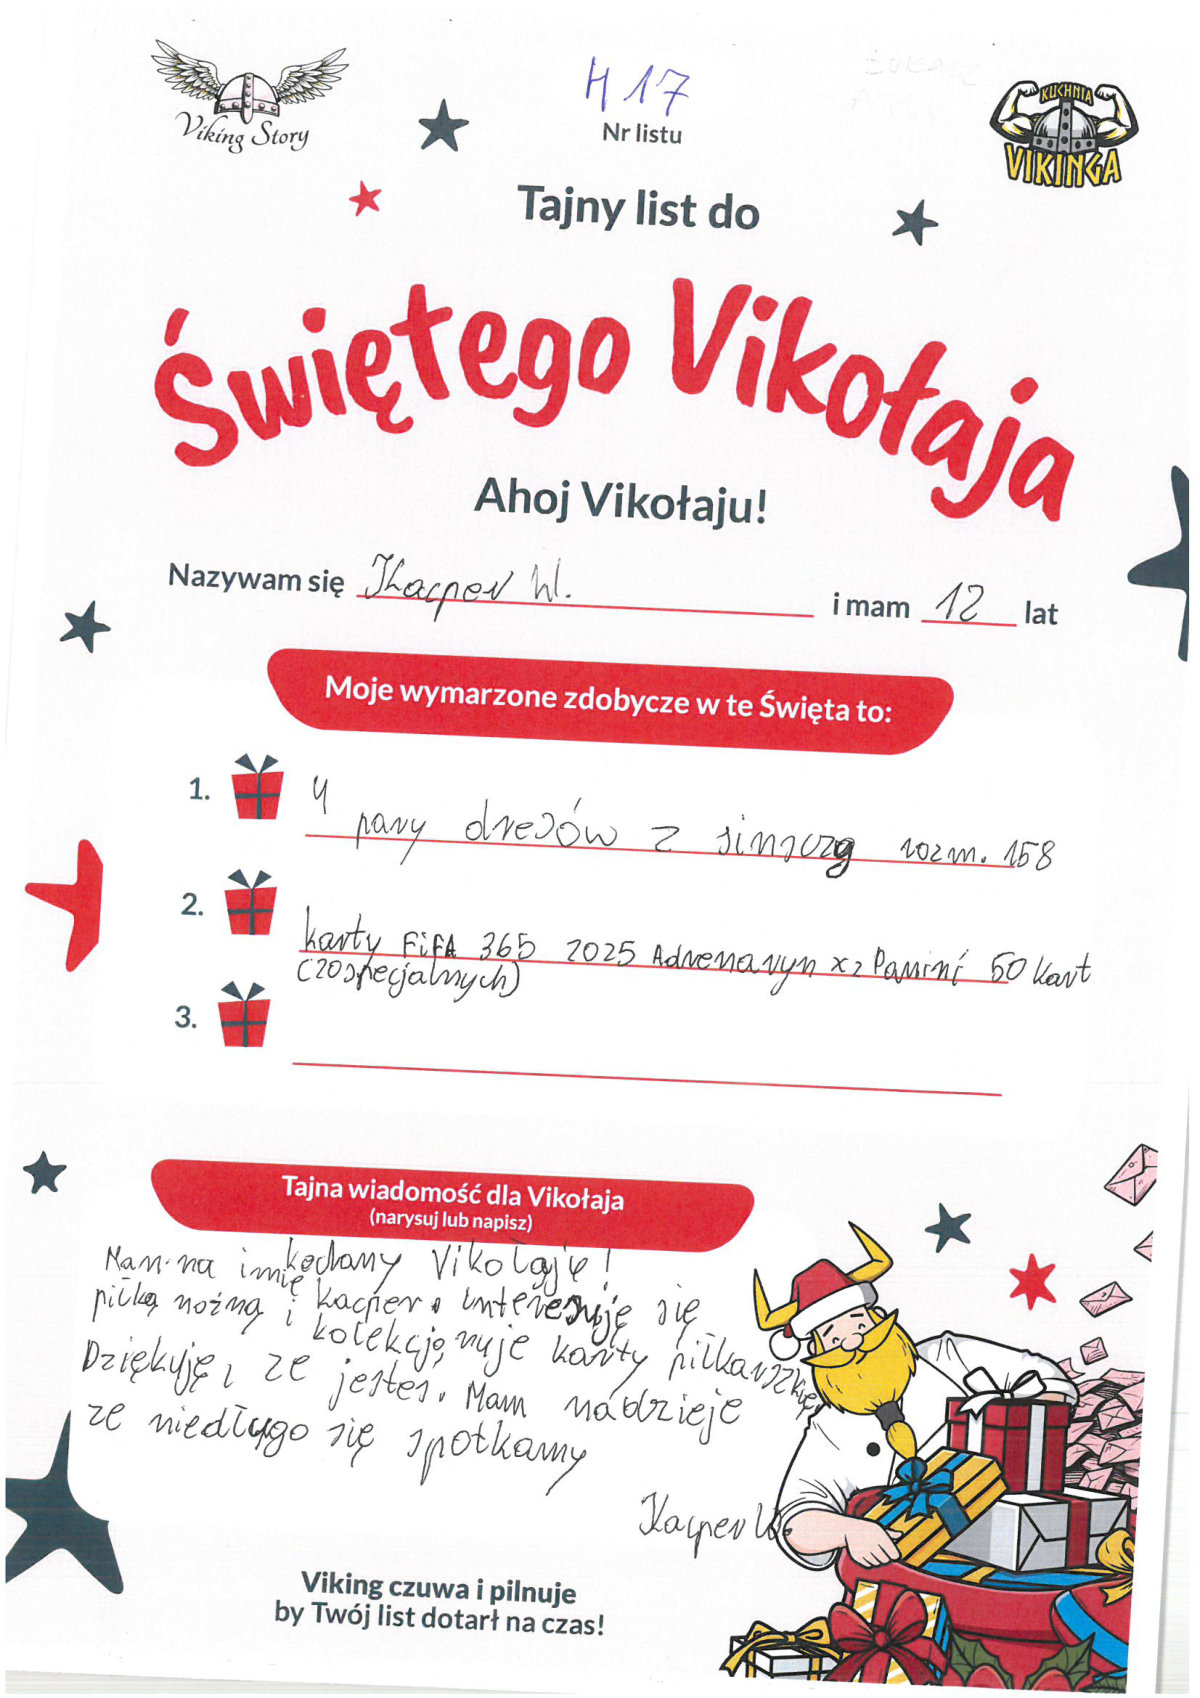 Viking Story
H 17
Nr listu
KUCHNIA
VIKINGA
Tajny list do
Świętego Vikołaja
Ahoj Vikołaju!
Nazywam się Kacper W. i mam 12 lat
Moje wymarzone zdobycze w te Święta to:
1. 4 pary dresów z rozm. 158
2. karty FiFA 365 2025 Adrenaryn x2 Panini 50 kart
(20 specjalnych)
3.
Tajna wiadomość dla Vikołaja
(narysuj lub napisz)
kochany Vikołaju!
Mam na imię Kacper. interesuję się
piłką nożną i kolekcjonuje karty piłkarskie
Dziękuję, ze jesteś. Mam nadzieje
ze niedługo się spotkamy
Kacper W.
Viking czuwa i pilnuje
by Twój list dotarł na czas!